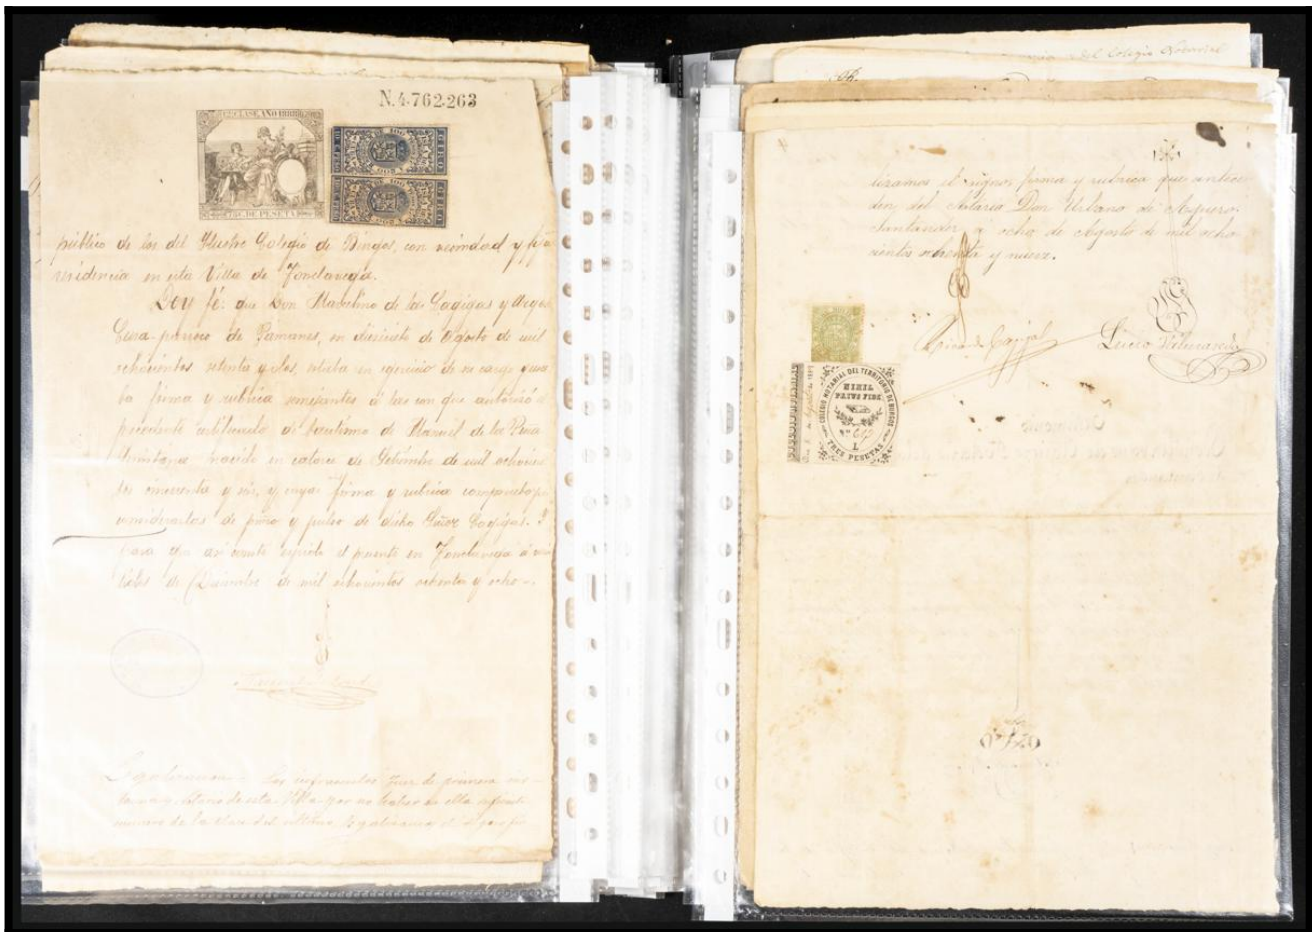 N.4.762.263
CLASE AÑO 1888
75 C. DE PESETA
público de los del Illustre Colegio de Burgos, con vecindad y
residencia en esta Villa de Torrelavega.
Doy fé: que Don Marcelino de la Cagigas y
Cura párroco de Pamanes, en diecisiete de Agosto de mil
ochocientos setenta y dos, estaba en egercicio de su cargo y
la firma y rubrica semejantes á las con que autorizó el
precedente certificado de bautismo de Manuel de la
Quintana nacido en catorce de Setiembre de mil ochocien
tos cincuenta y seis, y cuya firma y rubrica
considerarlas de puño y pulso de dicho Señor Cagigas. Y
para que asi conste espido el presente en Torrelavega á
de Diciembre de mil ochocientos ochenta y ocho.
Legalizacion = Los infrascritos Juez de primera ins-
tancia y notario de esta Villa por no haber en ella suficiente
numero de la clase del último legalizamos el signo
del Colegio Notarial
lizamos el signo firma y rubrica que antece
den del Notario Don Urbano de Agüero.
Santander, a ocho de Agosto de mil ocho
cientos ochenta y nueve.
Ricardo Cagigal
Lucio
COLEGIO NOTARIAL DEL TERRITORIO DE BURGOS
NIHIL
PRIUS FIDE
TRES PESETAS